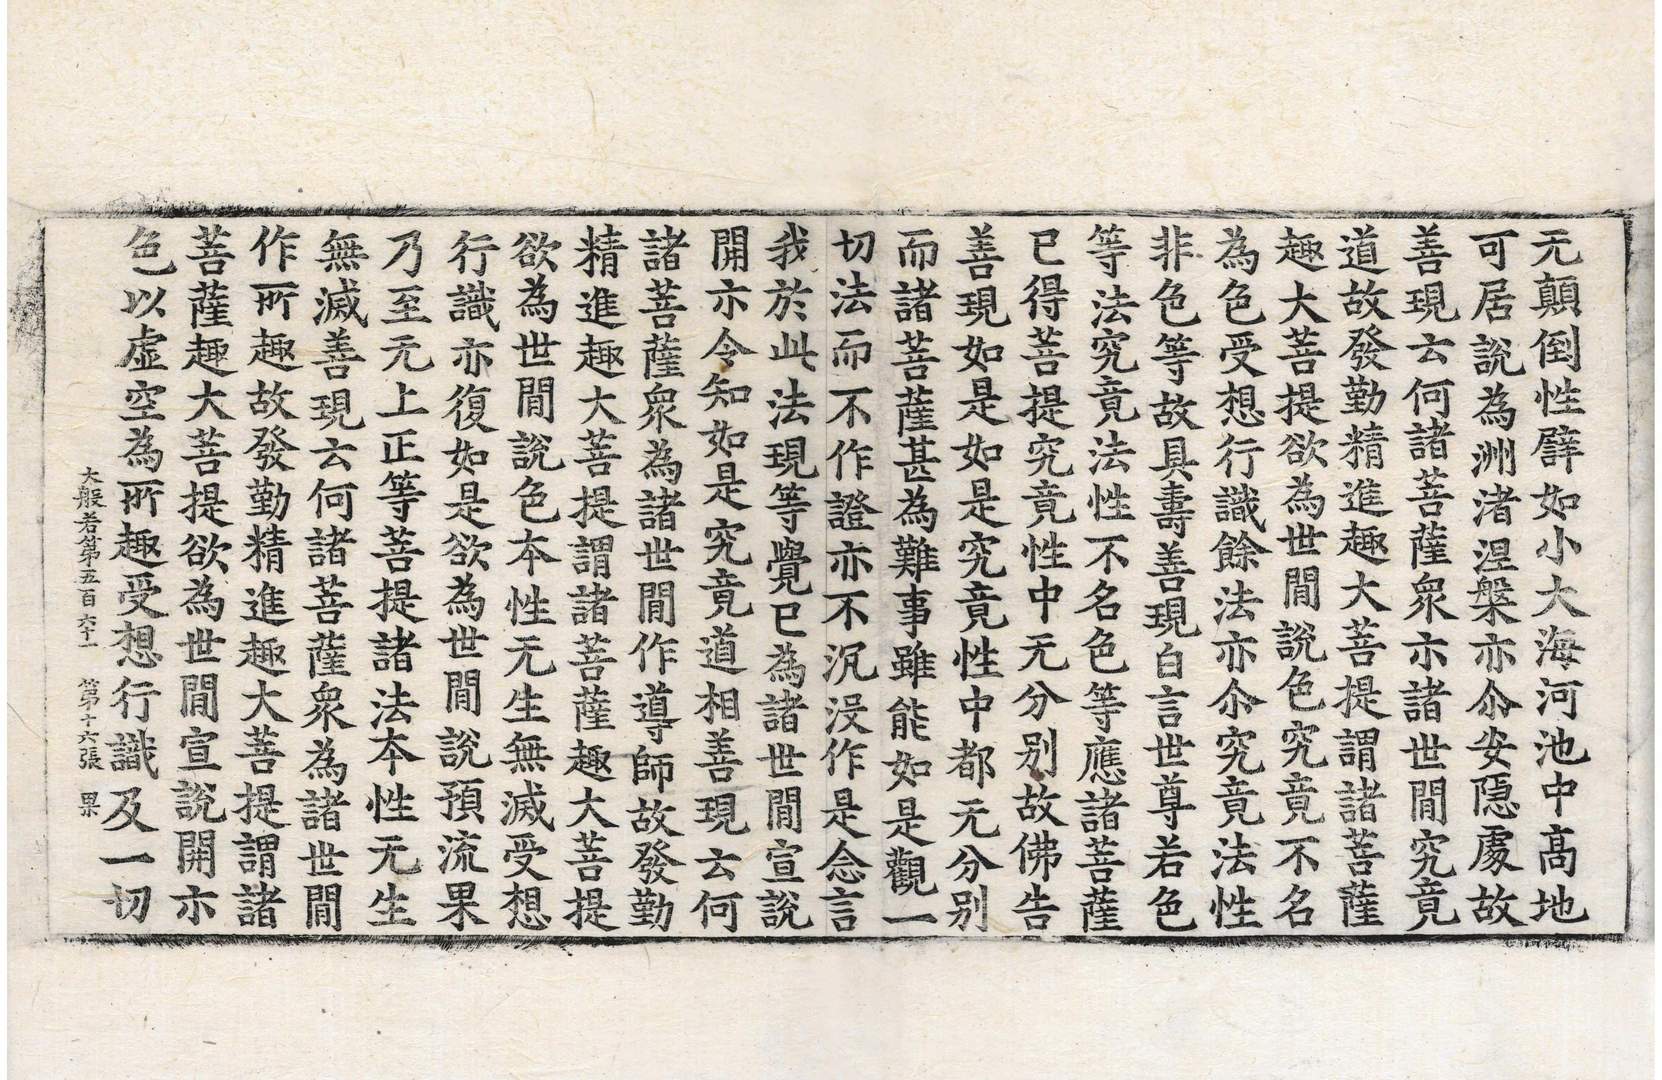 无顚倒性譬如小大海河池中髙地
可居說為洲渚涅槃亦尒安隱處故
善現云何諸菩薩衆示諸世間究竟
道故發勤精進趣大菩提謂諸菩薩
趣大菩提欲為世間說色究竟不名
為色受想行識餘法亦尒究竟法性
非色等故具壽善現白言世尊若色
等法究竟法性不名色等應諸菩薩
已得菩提究竟性中无分别故佛告
善現如是如是究竟性中都无分别
而諸菩薩甚為難事雖能如是觀一
切法而不作證亦不沉没作是念言
我於此法現等覺已為諸世間宣說
開示令知如是究竟道相善現云何
諸菩薩衆為諸世間作導師故發勤
精進趣大菩提謂諸菩薩趣大菩提
欲為世間說色本性无生無滅受想
行識亦復如是欲為世間說預流果
乃至无上正等菩提諸法本性无生
無滅善現云何諸菩薩衆為諸世間
作所趣故發勤精進趣大菩提謂諸
菩薩趣大菩提欲為世間宣說開示
色以虛空為所趣受想行識及一切
大般若第五百六十一 第十六張 果